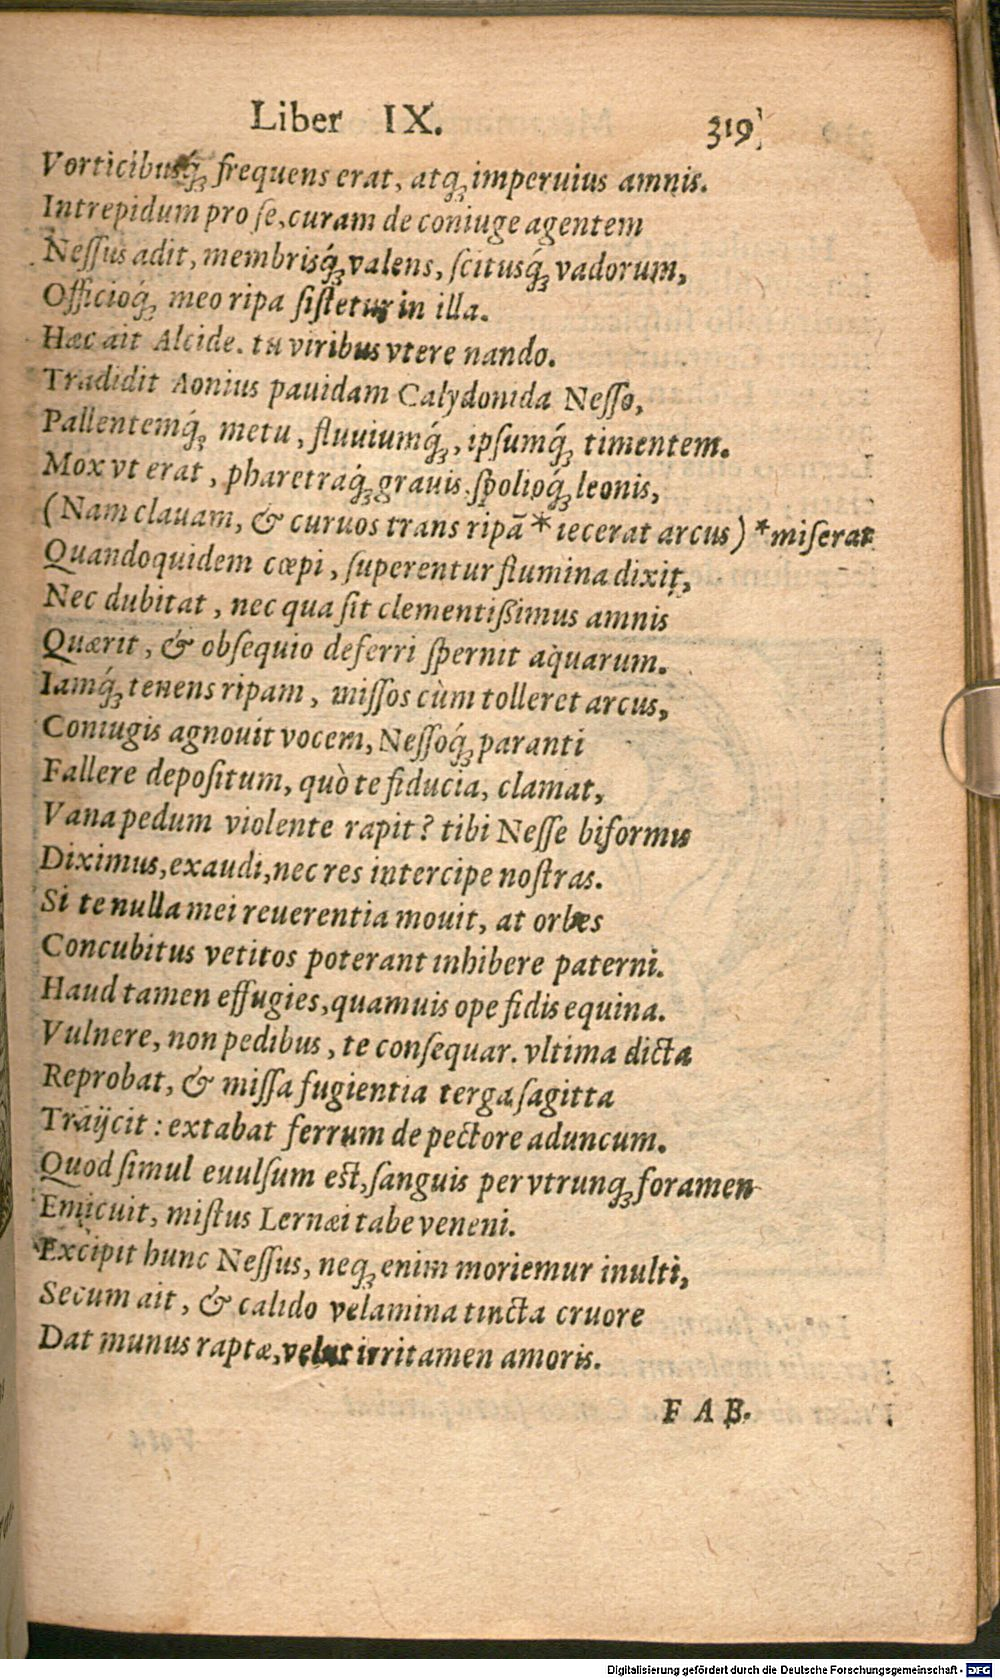 Liber IX. 319
Vorticibusq́ꝫ frequens erat, atqꝫ imperuius amnis.
Intrepidum pro se, curam de coniuge agentem
Neſſus adit, membrisq́ꝫ valens, ſcitusq́ꝫ vadorum,
Officioq́ꝫ meo ripa ſiſtetur in illa.
Hæc ait Alcide. tu viribus vtere nando.
Tradidit Aonius pauidam Calydonida Neſſo,
Pallentemq́ꝫ metu, fluuiumq́ꝫ, ipſumq́ꝫ timentem.
Mox vt erat, pharetraq́ꝫ grauis, ſpolioq́ꝫ leonis,
(Nam clauam, & curuos trans ripã * iecerat arcus) * miſerat
Quandoquidem cœpi, ſuperentur flumina dixit,
Nec dubitat, nec qua ſit clementißimus amnis
Quærit, & obſequio deferri ſpernit aquarum.
Iamq́ꝫ tenens ripam, miſſos cùm tolleret arcus,
Coniugis agnouit vocem, Neſſoq́ꝫ paranti
Fallere depoſitum, quò te fiducia, clamat,
Vana pedum violente rapit? tibi Neſſe biformis
Diximus, exaudi, nec res intercipe noſtras.
Si te nulla mei reuerentia mouit, at orbes
Concubitus vetitos poterant inhibere paterni.
Haud tamen effugies, quamuis ope fidis equina.
Vulnere, non pedibus, te conſequar. vltima dicta
Reprobat, & miſſa fugientia terga ſagitta
Traijcit: extabat ferrum de pectore aduncum.
Quod ſimul euulſum eſt, ſanguis per vtrunqꝫ foramen
Emicuit, miſtus Lernæi tabe veneni.
Excipit hunc Neſſus, neqꝫ enim moriemur inulti,
Secum ait, & calido velamina tincta cruore
Dat munus raptæ, velut irritamen amoris.
FAB.
Digitalisierung gefördert durch die Deutsche Forschungsgemeinschaft - DFG